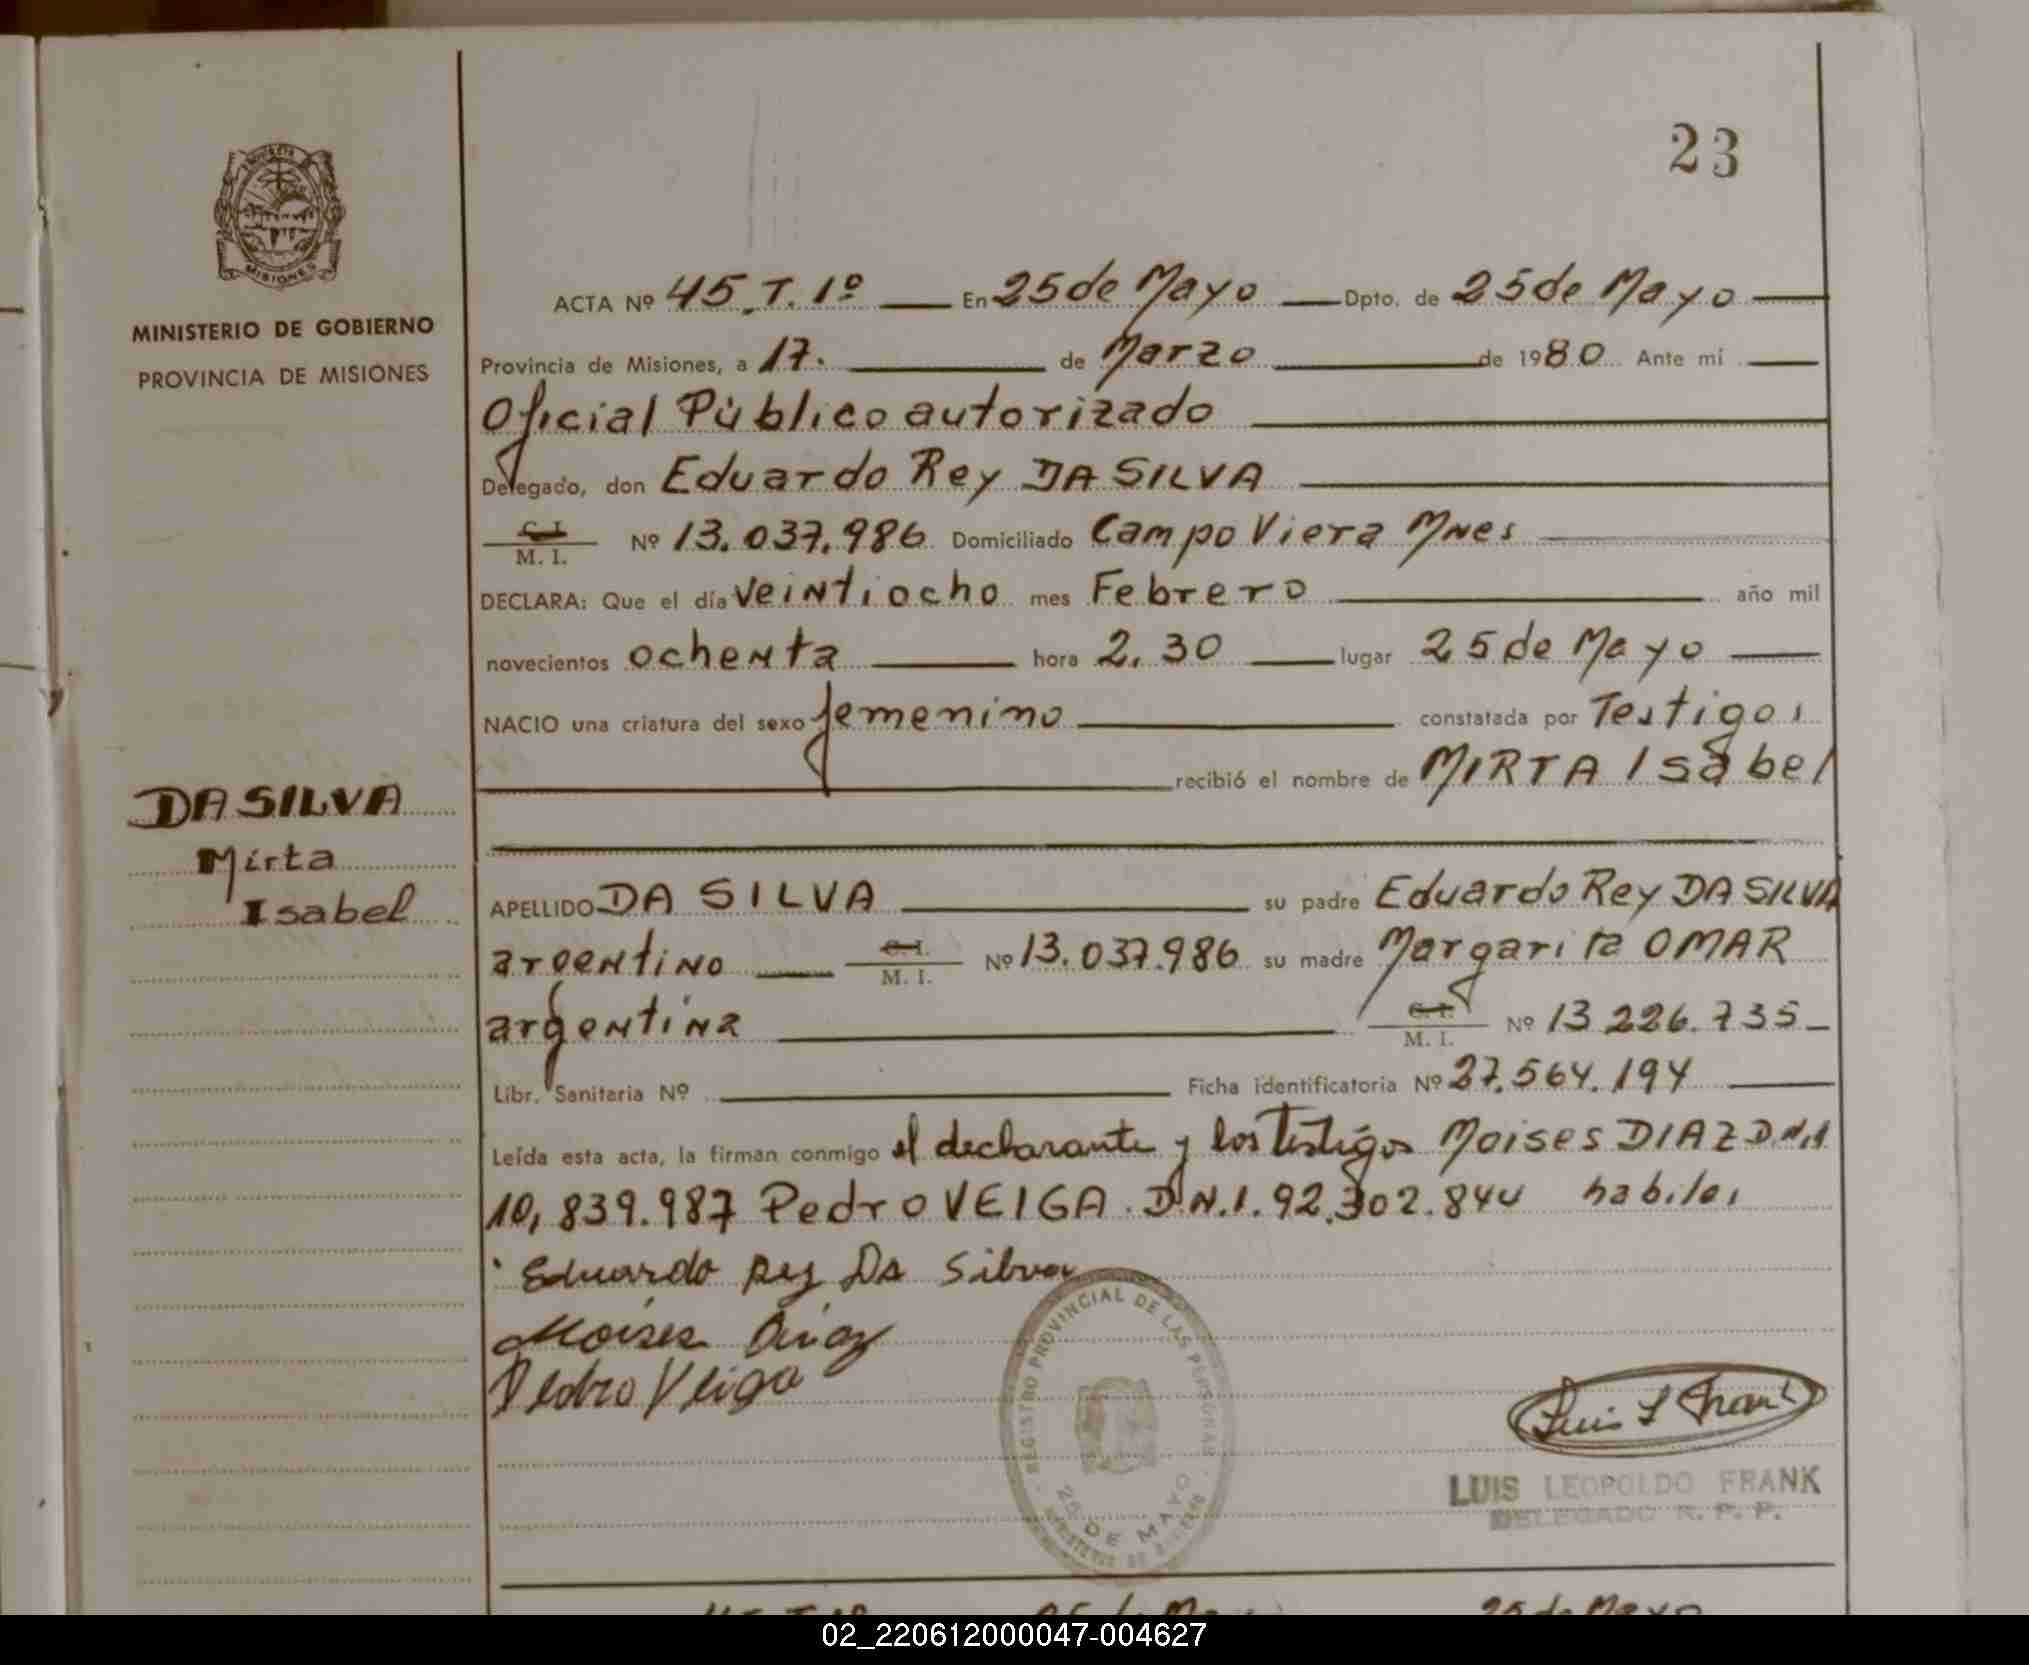 23
PROVINCIA
MISIONES
MINISTERIO DE GOBIERNO
PROVINCIA DE MISIONES
DA SILVA
Mirta
Isabel
ACTA Nº 45 T. 1º En 25 de Mayo Dpto. de 25 de Mayo
Provincia de Misiones, a 17. de Marzo de 1980 Ante mí
Oficial Público autorizado
Delegado, don Eduardo Rey DA SILVA
C. I. M. I. Nº 13.037.986 Domiciliado Campo Viera Mnes
DECLARA: Que el día veintiocho mes Febrero año mil
novecientos ochenta hora 2.30 lugar 25 de Mayo
NACIO una criatura del sexo femenino constatada por Testigos
recibió el nombre de MIRTA Isabel
APELLIDO DA SILVA su padre Eduardo Rey DA SILVA
argentino C. I. M. I. Nº 13.037.986 su madre Margarita OMAR
argentina C. I. M. I. Nº 13 226.735
Libr. Sanitaria Nº Ficha identificatoria Nº 27.564.194
Leída esta acta, la firman conmigo el declarante y los Testigos Moises DIAZ D.N.I
10,839.987 Pedro VEIGA. D.N.I. 92.302.844 habiles
Eduardo Rey Da Silva
Moises Diaz
Pedro Veiga
REGISTRO PROVINCIAL DE LAS PERSONAS
25 DE MAYO
MINISTERIO DE GOBIERNO
Luis L Frank
LUIS LEOPOLDO FRANK
DELEGADO R. P. P.
02_220612000047-004627